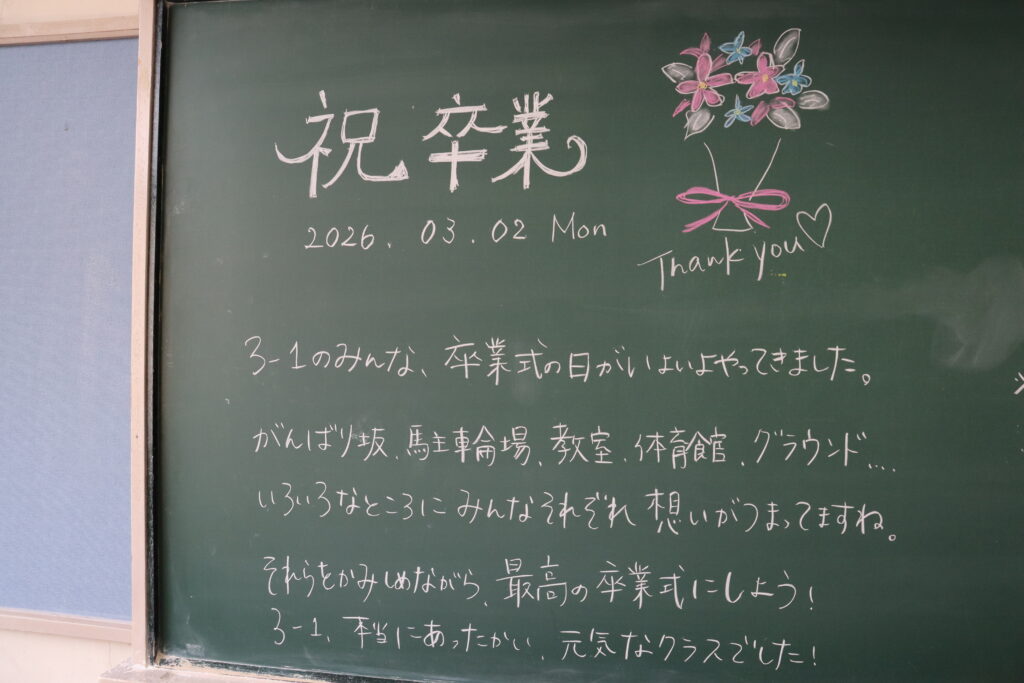 祝 卒業
2026. 03. 02 Mon
Thank you
3-1のみんな、卒業式の日がいよいよやってきました。
がんばり坂、駐車輪場、教室、体育館、グラウンド....
いろいろなところにみんなそれぞれ想いがつまってますね。
それらをかみしめながら、最高の卒業式にしよう!
3-1、本当にあったかい、元気なクラスでした!